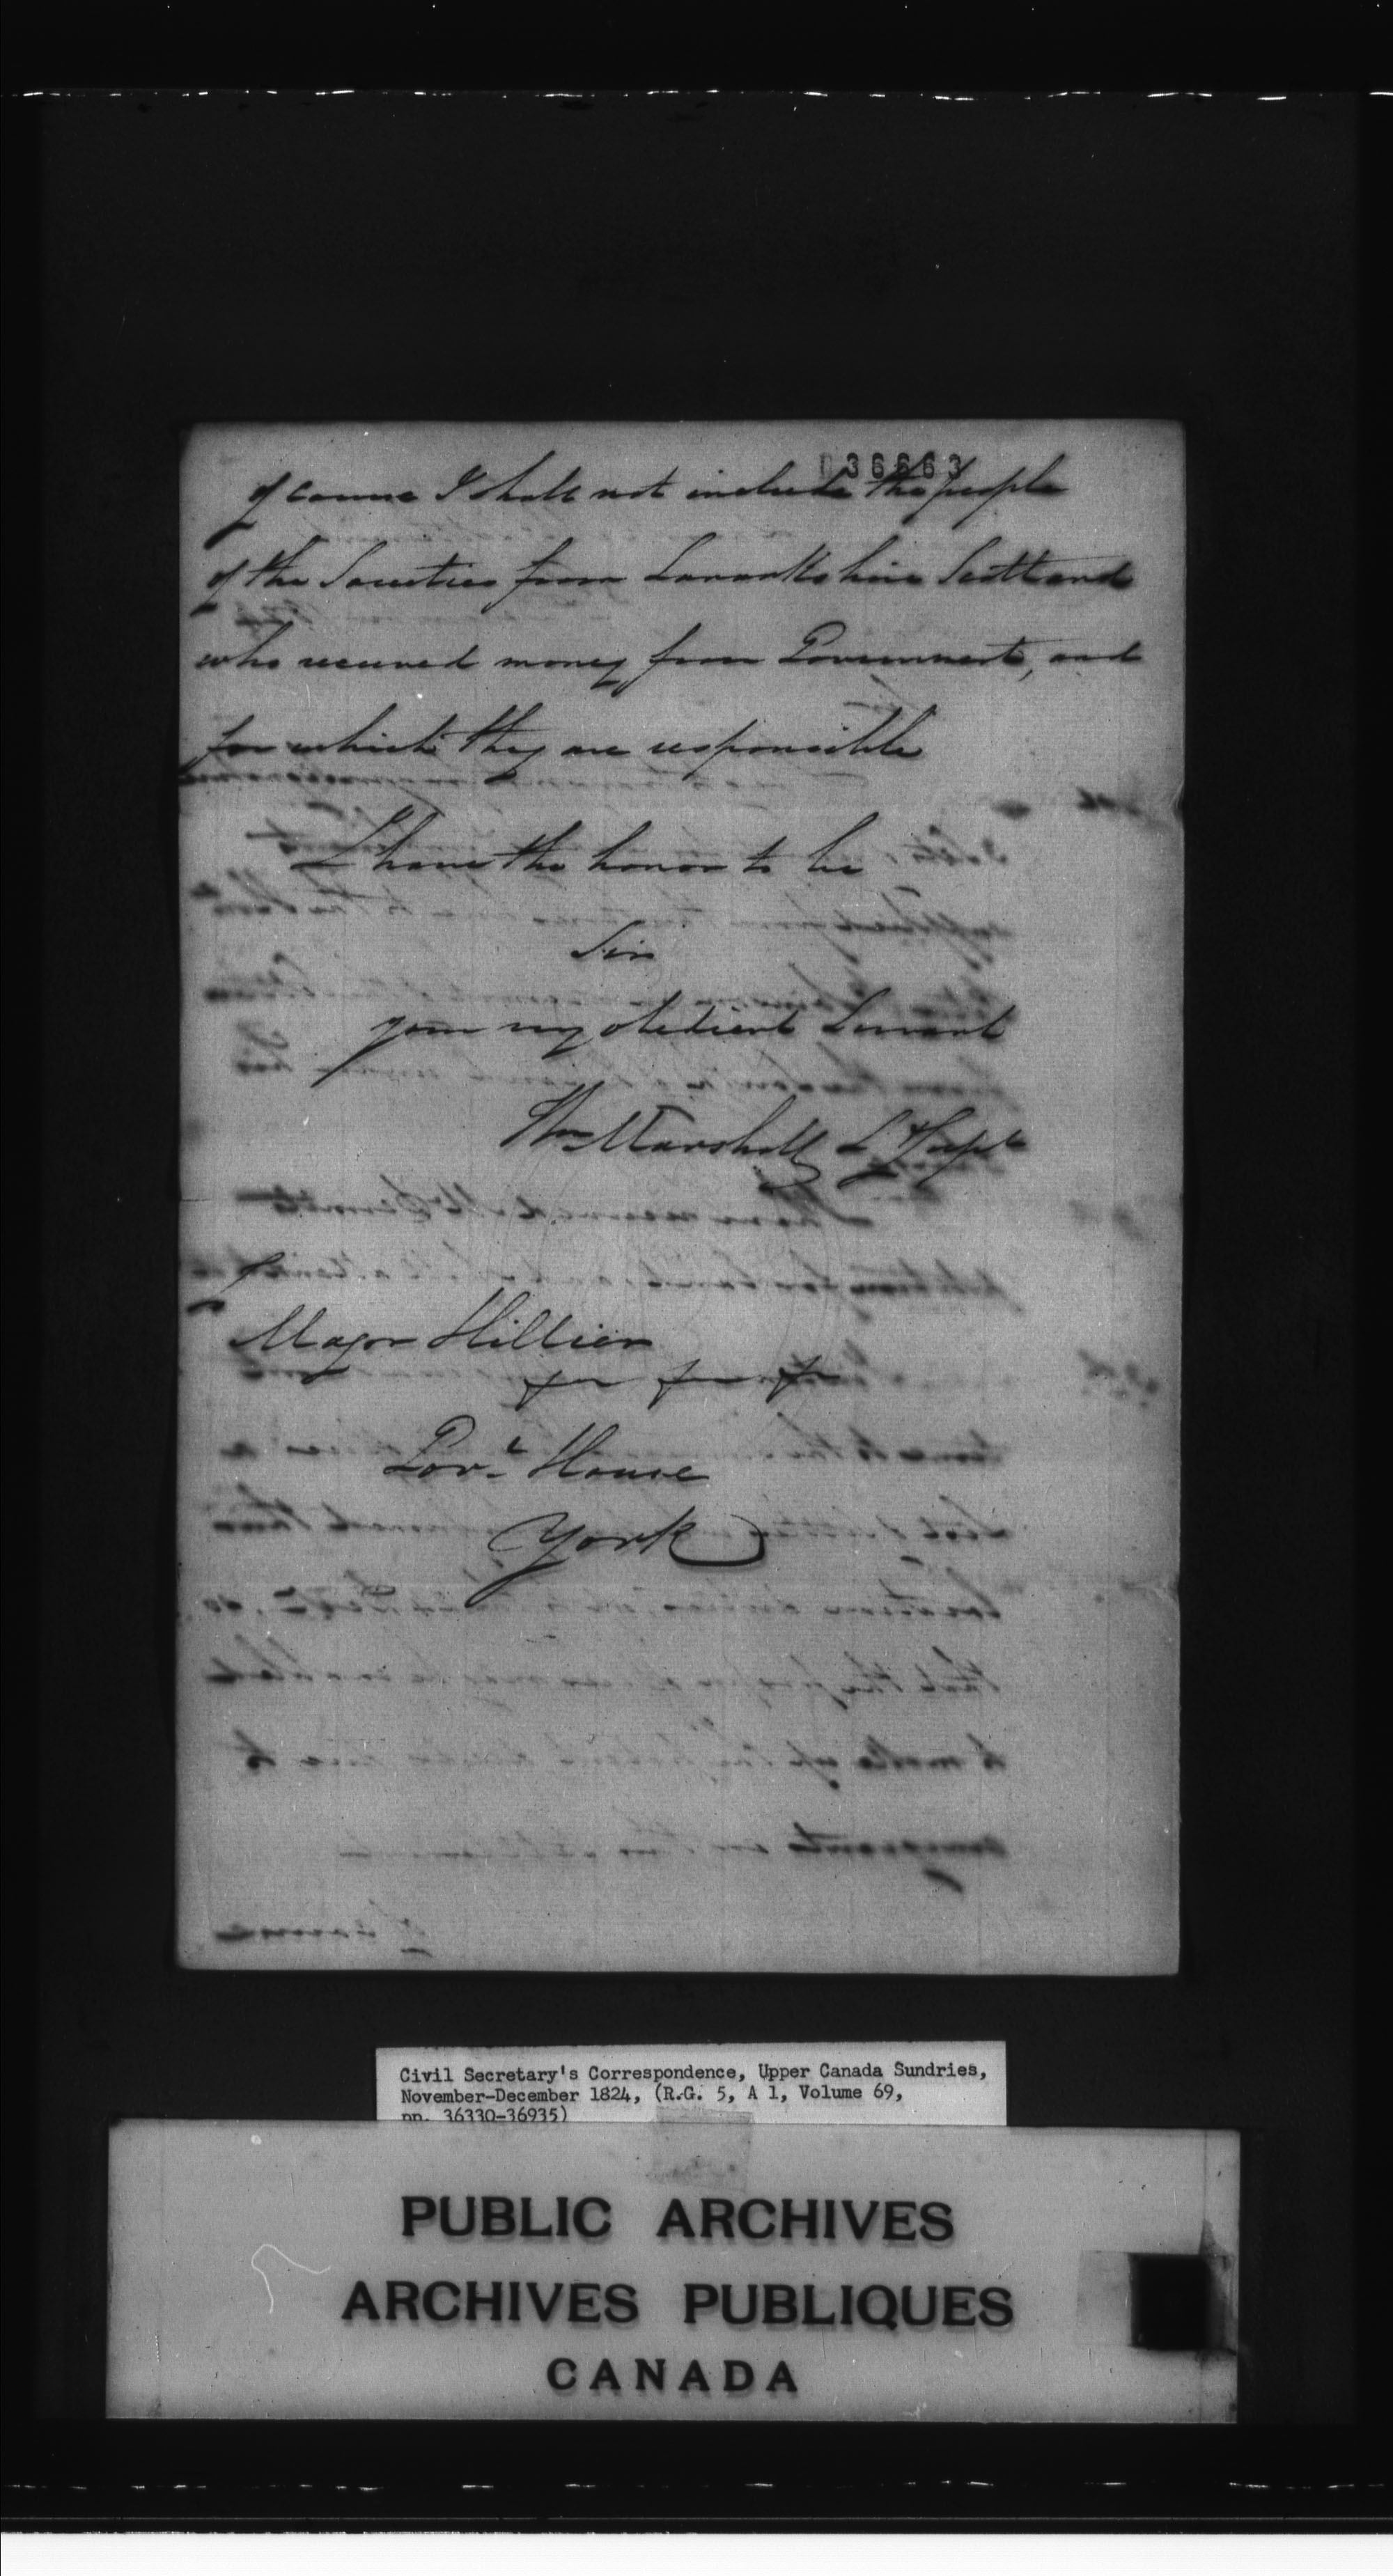 36663
of course I shall not include the people
of the Societies from Lanarkshire Scotland
who received money from Government, and
for which they are responsible
I have the honor to be
Sir
your very obedient Servant
Wm Marshall
Major Hillier
Govt House
York
Civil Secretary's Correspondence, Upper Canada Sundries,
November-December 1824, (R.G. 5, A 1, Volume 69,
pp. 36330-36935)
PUBLIC ARCHIVES
ARCHIVES PUBLIQUES
CANADA